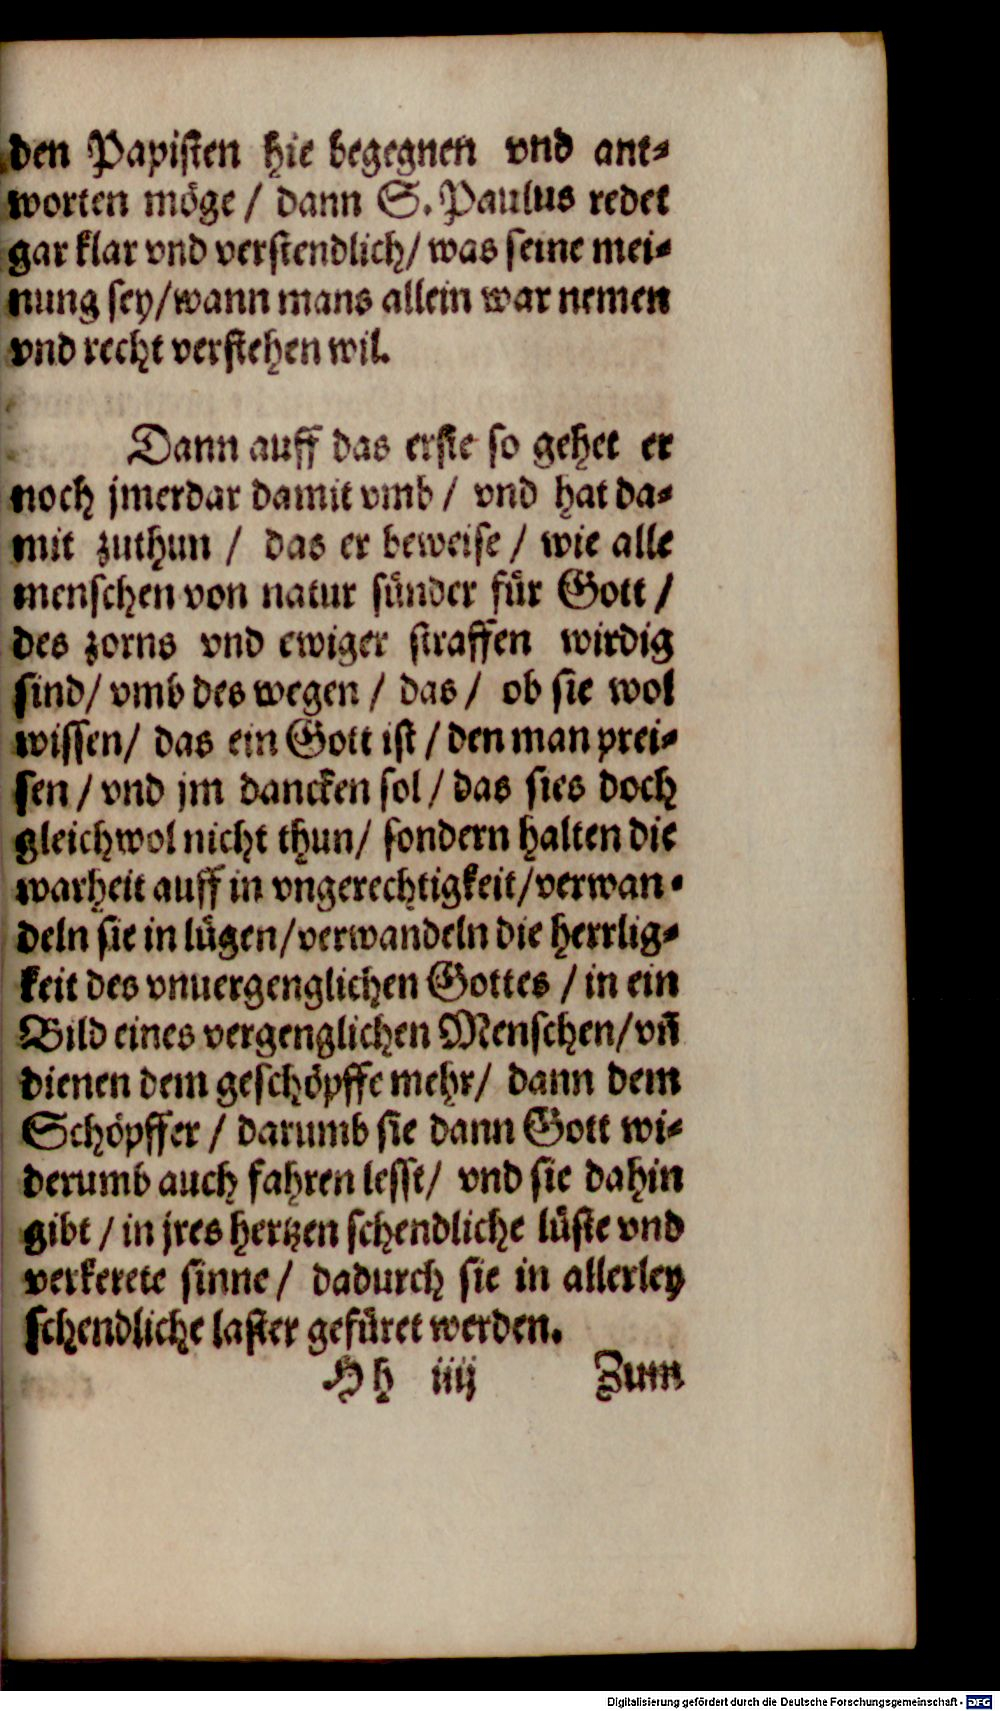 den Papiſten hie begegnen vnd ant⸗
worten möge / dann S. Paulus redet
gar klar vnd verſtendlich / was ſeine mei⸗
nung ſey / wann mans allein war nemen
vnd recht verſtehen wil.
Dann auff das erſte ſo gehet er
noch jmerdar damit vmb / vnd hat da⸗
mit zuthun / das er beweiſe / wie alle
menſchen von natur ſünder für Gott /
des zorns vnd ewiger ſtraffen wirdig
ſind / vmb des wegen / das / ob ſie wol
wiſſen / das ein Gott iſt / den man prei⸗
ſen / vnd jm dancken ſol / das ſies doch
gleichwol nicht thun / ſondern halten die
warheit auff in vngerechtigkeit / verwan⸗
deln ſie in lügen / verwandeln die herrlig⸗
keit des vnuergenglichen Gottes / in ein
Bild eines vergenglichen Menſchen / vñ
dienen dem geſchöpffe mehr / dann dem
Schöpffer / darumb ſie dann Gott wi⸗
derumb auch fahren leſſt / vnd ſie dahin
gibt / in jres hertzen ſchendliche lüſte vnd
verkerete ſinne / dadurch ſie in allerley
ſchendliche laſter gefüret werden.
Hh iiij Zum
Digitalisierung gefördert durch die Deutsche Forschungsgemeinschaft - DFG